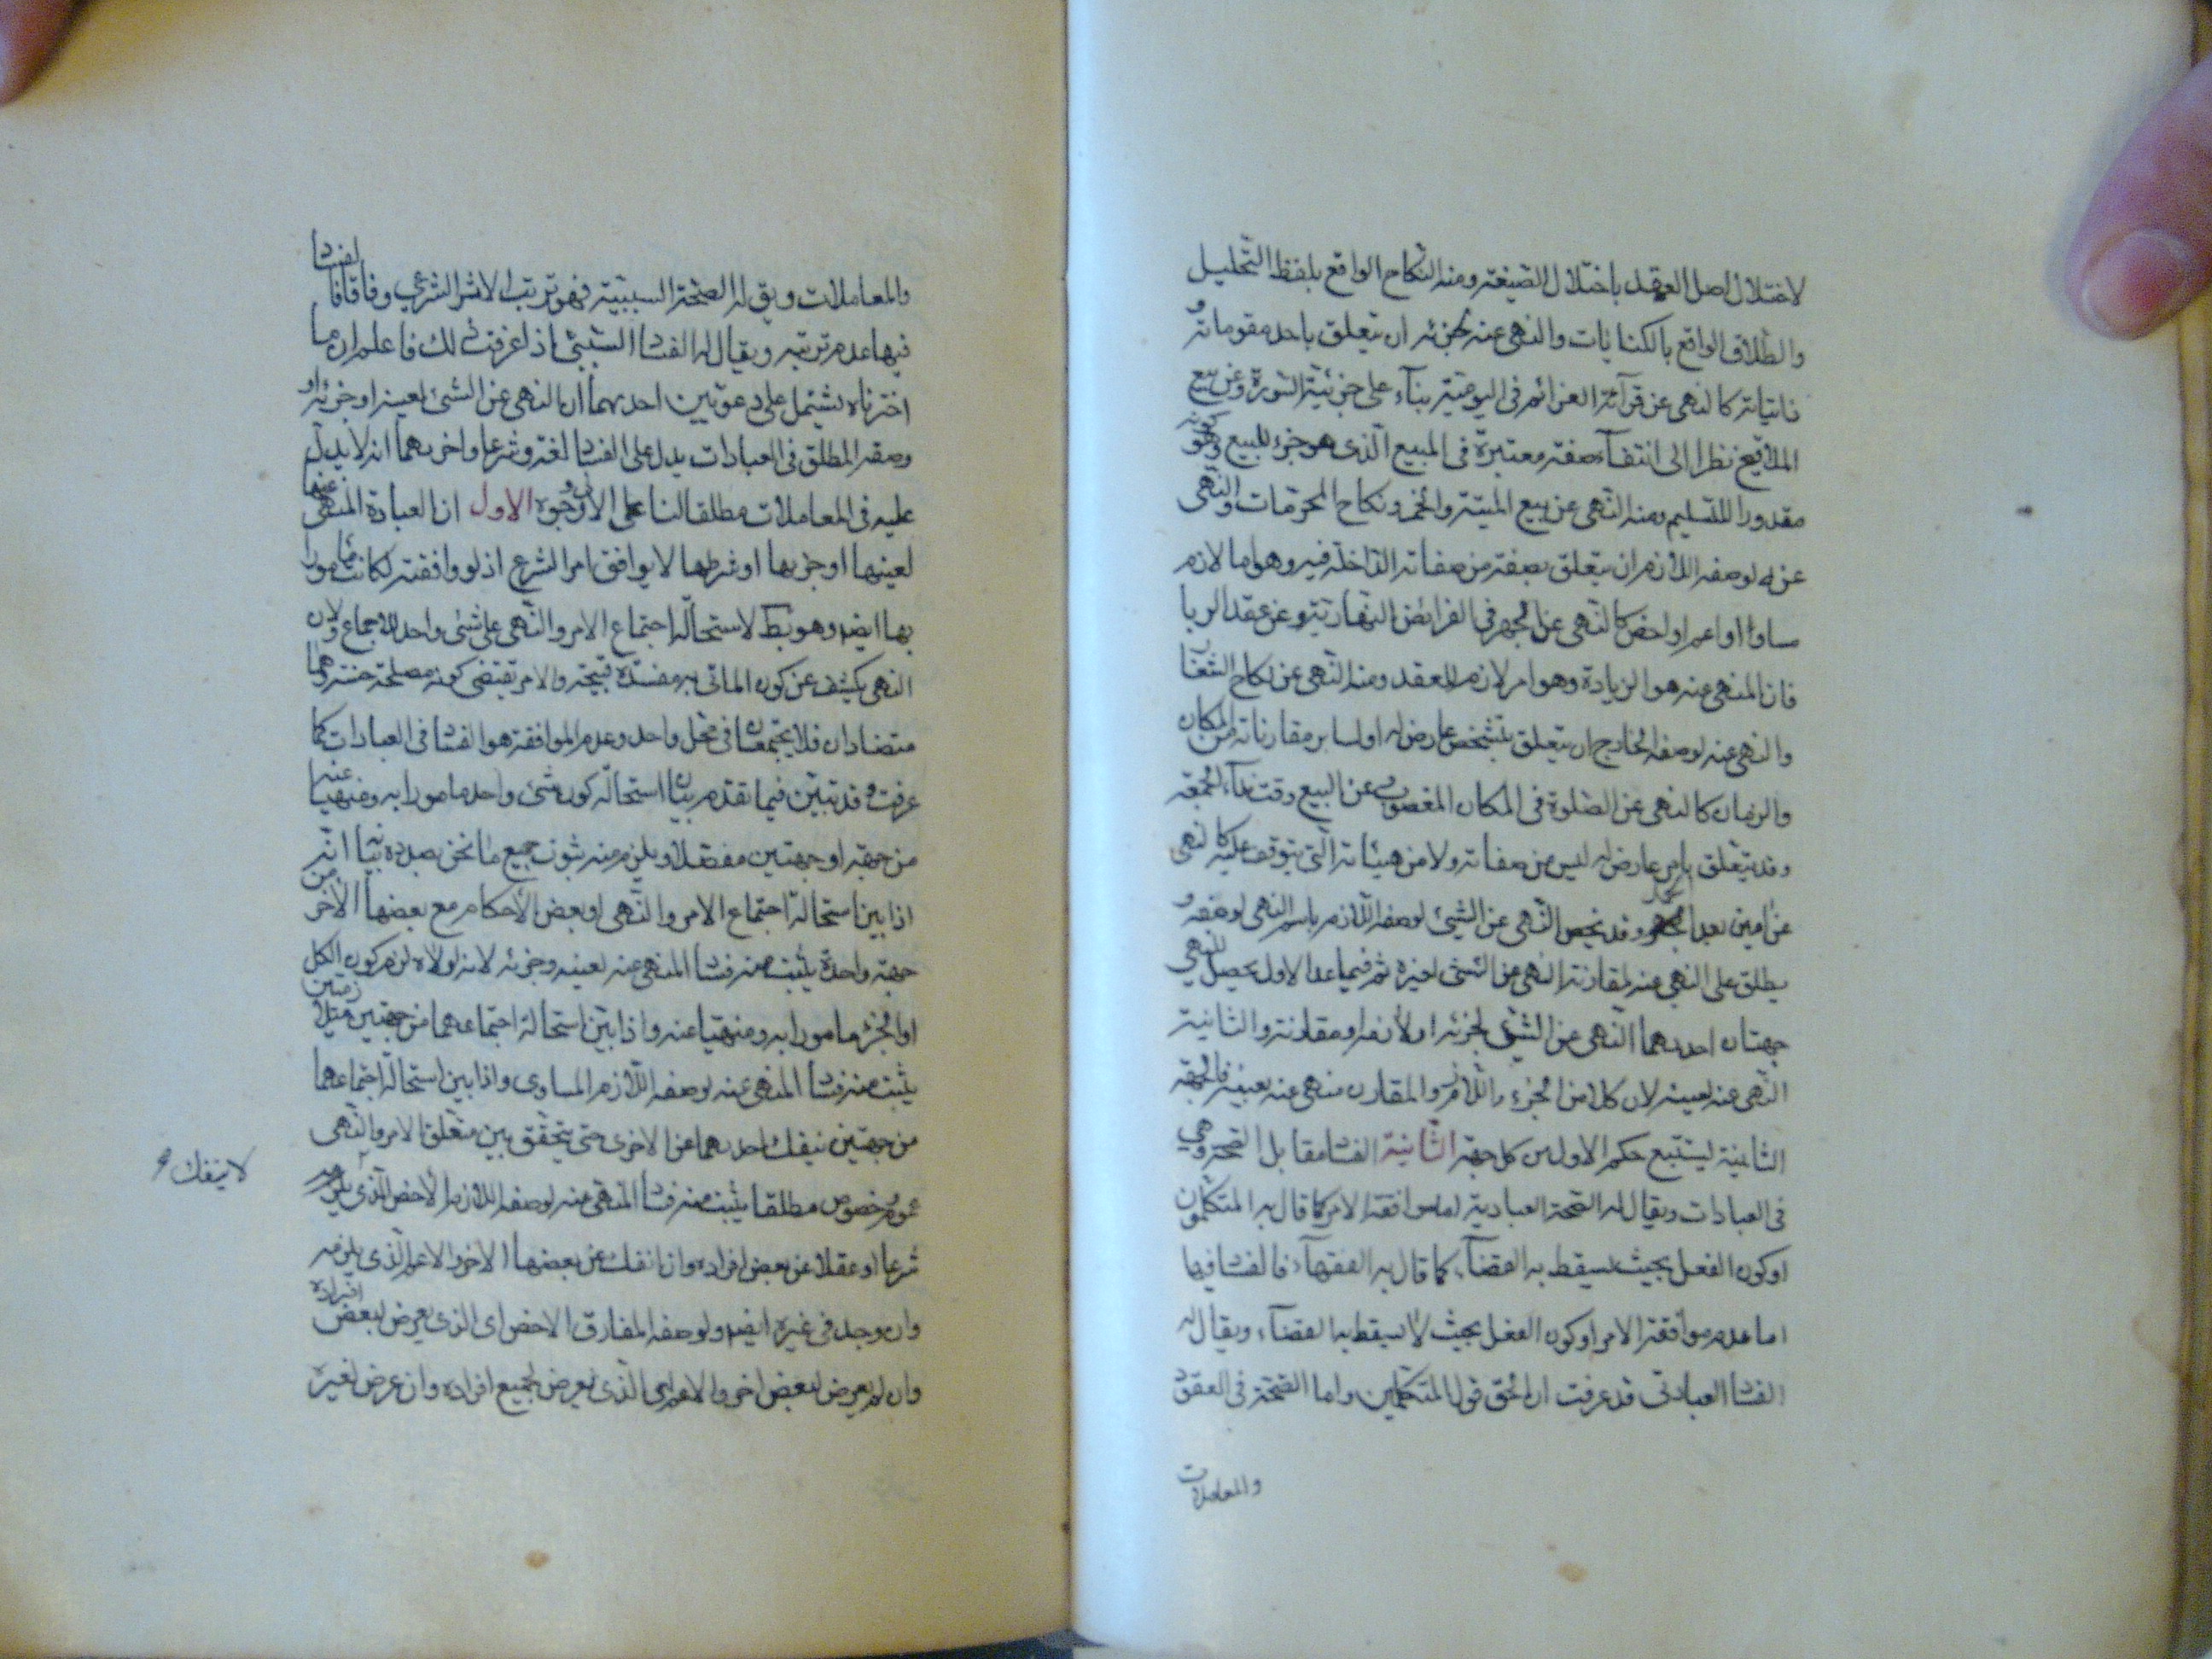 لاختلال اصل العقد باختلال الصيغة ومنه النكاح الواقع بلفظ التحليل
والطلاق الواقع بالكنايات والنهى عنه لجزئه ان يتعلق باحد مقوماته و
ذاتياته كالنهى عن قرآءة العزائم فى اليومية بناء على جزئية السورة وعن بيع
الملاقيح نظرا الى انتفآء صفة معتبرة فى المبيع الذى هو جزء للبيع وهو كونه
مقدورا للتسليم ومنه النهى عن بيع الميتة والخمر ونكاح المحرمات والنهى
عنه لوصفه اللازم ان يتعلق بصفة من صفاته الداخلة فيه وهو اما لازم
مساو او اعم او اخص كالنهى عن الجهر فى الفرائض النهارية وعن عقد الربا
فان المنهى عنه هو الزيادة وهو امر لازم للعقد ومنه النهى عن نكاح الشغار
والنهى عنه لوصفه الخارج ان يتعلق بتشخص عارض له او لساير مقارناته من المكان
والزمان كالنهى عن الصلوة فى المكان المغصوب وعن البيع وقت ندآء الجمعة
وقد يتعلق بامر عارض له ليس من صفاته ولا من هيئاته التى يتوقف عليه كالنهى
عن امين بعد الحمد وقد يخص النهى عن الشيئ لوصفه اللازم باسم النهى لوصفه و
يطلق على النهى عنه لمقارنة النهى عن الشئ لغيره ثم فيما عدا الاول يحصل للنهى
جهتان احدهما النهى عن الشئ لجزئه او لازمه او مقارنه والثانية
النهى عنه لعينه لان كلا من الجزء واللازم والمقارن منهى عنه بعينه فالجهة
الثانية يستتبع حكم الاول من كل جهة الثانية الفساد مقابل الصحة وهى
فى العبادات ويقال له الصحة العبادية اما موافقة الامر كما قال به المتكلمون
او كون الفعل بحيث يسقط به القضآء كما قال به الفقهآء فالفساد فيها
اما عدم موافقة الامر او كون الفعل بحيث لا يسقط به القضآء ويقال له
الفساد العبادتى قد عرفت ان الحق قول المتكلمين واما الصحة فى العقود
والمعاملات
والمعاملات ويق له الصحة السببية فهو ترتب الاثر الشرعى وفاقا فالفساد
فيها عدم ترتبه ويقال له الفساد السببى اذا عرفت ذلك فاعلم ان ما
اخترناه يشتمل على دعويين احدهما ان النهى عن الشئ لعينه او جزئه او
وصفه المطلق فى العبادات يدل على الفساد لغة وشرعا واخريهما انه لا يدل
عليه فى المعاملات مطلقا لنا على الاولى وجوه الاول ان العبادة المنهى عنها
لعينها او جزئها او شرطها لا يوافق امر الشرع اذ لو وافقته لكانت مأمورا
بها ايضا وهو بط لاستحالة اجتماع الامر والنهى على شئ واحد للاجماع ولان
النهى يكشف عن كون الماتى به مفسدة قبيحة والامر يقتضى كونه مصلحة حسنة وهما
متضادان فلا يجتمعان فى محل واحد وعدم الموافقة هو الفساد فى العبادات كما
عرفت وقد تبين فيما تقدم بيان استحالة كون شئ واحد مامورا به ومنهيا عنه
من جهة او جهتين مفصلا ويلزم منه ثبوت جميع ما نحن بصدده بيان انه
اذا بين استحالة اجتماع الامر والنهى او بعض الأحكام مع بعضها الآخر من
جهة واحدة يثبت منه فساد المنهى عنه لعينه وجزئه لانه لولاه لزم كون الكل
او الجزء مامورا به ومنهيا عنه واذا بين استحالة اجتماعهما من جهتين متلازمين
يثبت منه فساد المنهى عنه لوصفه اللازم المساوى واذا بين استحالة اجتماعهما
من جهتين ينفك احدهما عن الاخرى حتى يتحقق بين متعلق الامر والنهى
لا ينفك
عموم وخصوص مطلقا يثبت منه فساد المنهى عنه لوصفه اللازم الأخص الذى يلزم
شرعا او عقلا عن بعض افراده وان انفك عن بعضها الآخر والاعم الذى يلزمه
وان وجد فى غيره ايضا ولوصفه المفارق الاخص اى الذى يعرض لبعض افراده
وان لم يعرض لبعض اخر والاعم اى الذى يعرض لجميع افراده وان عرض لغيره